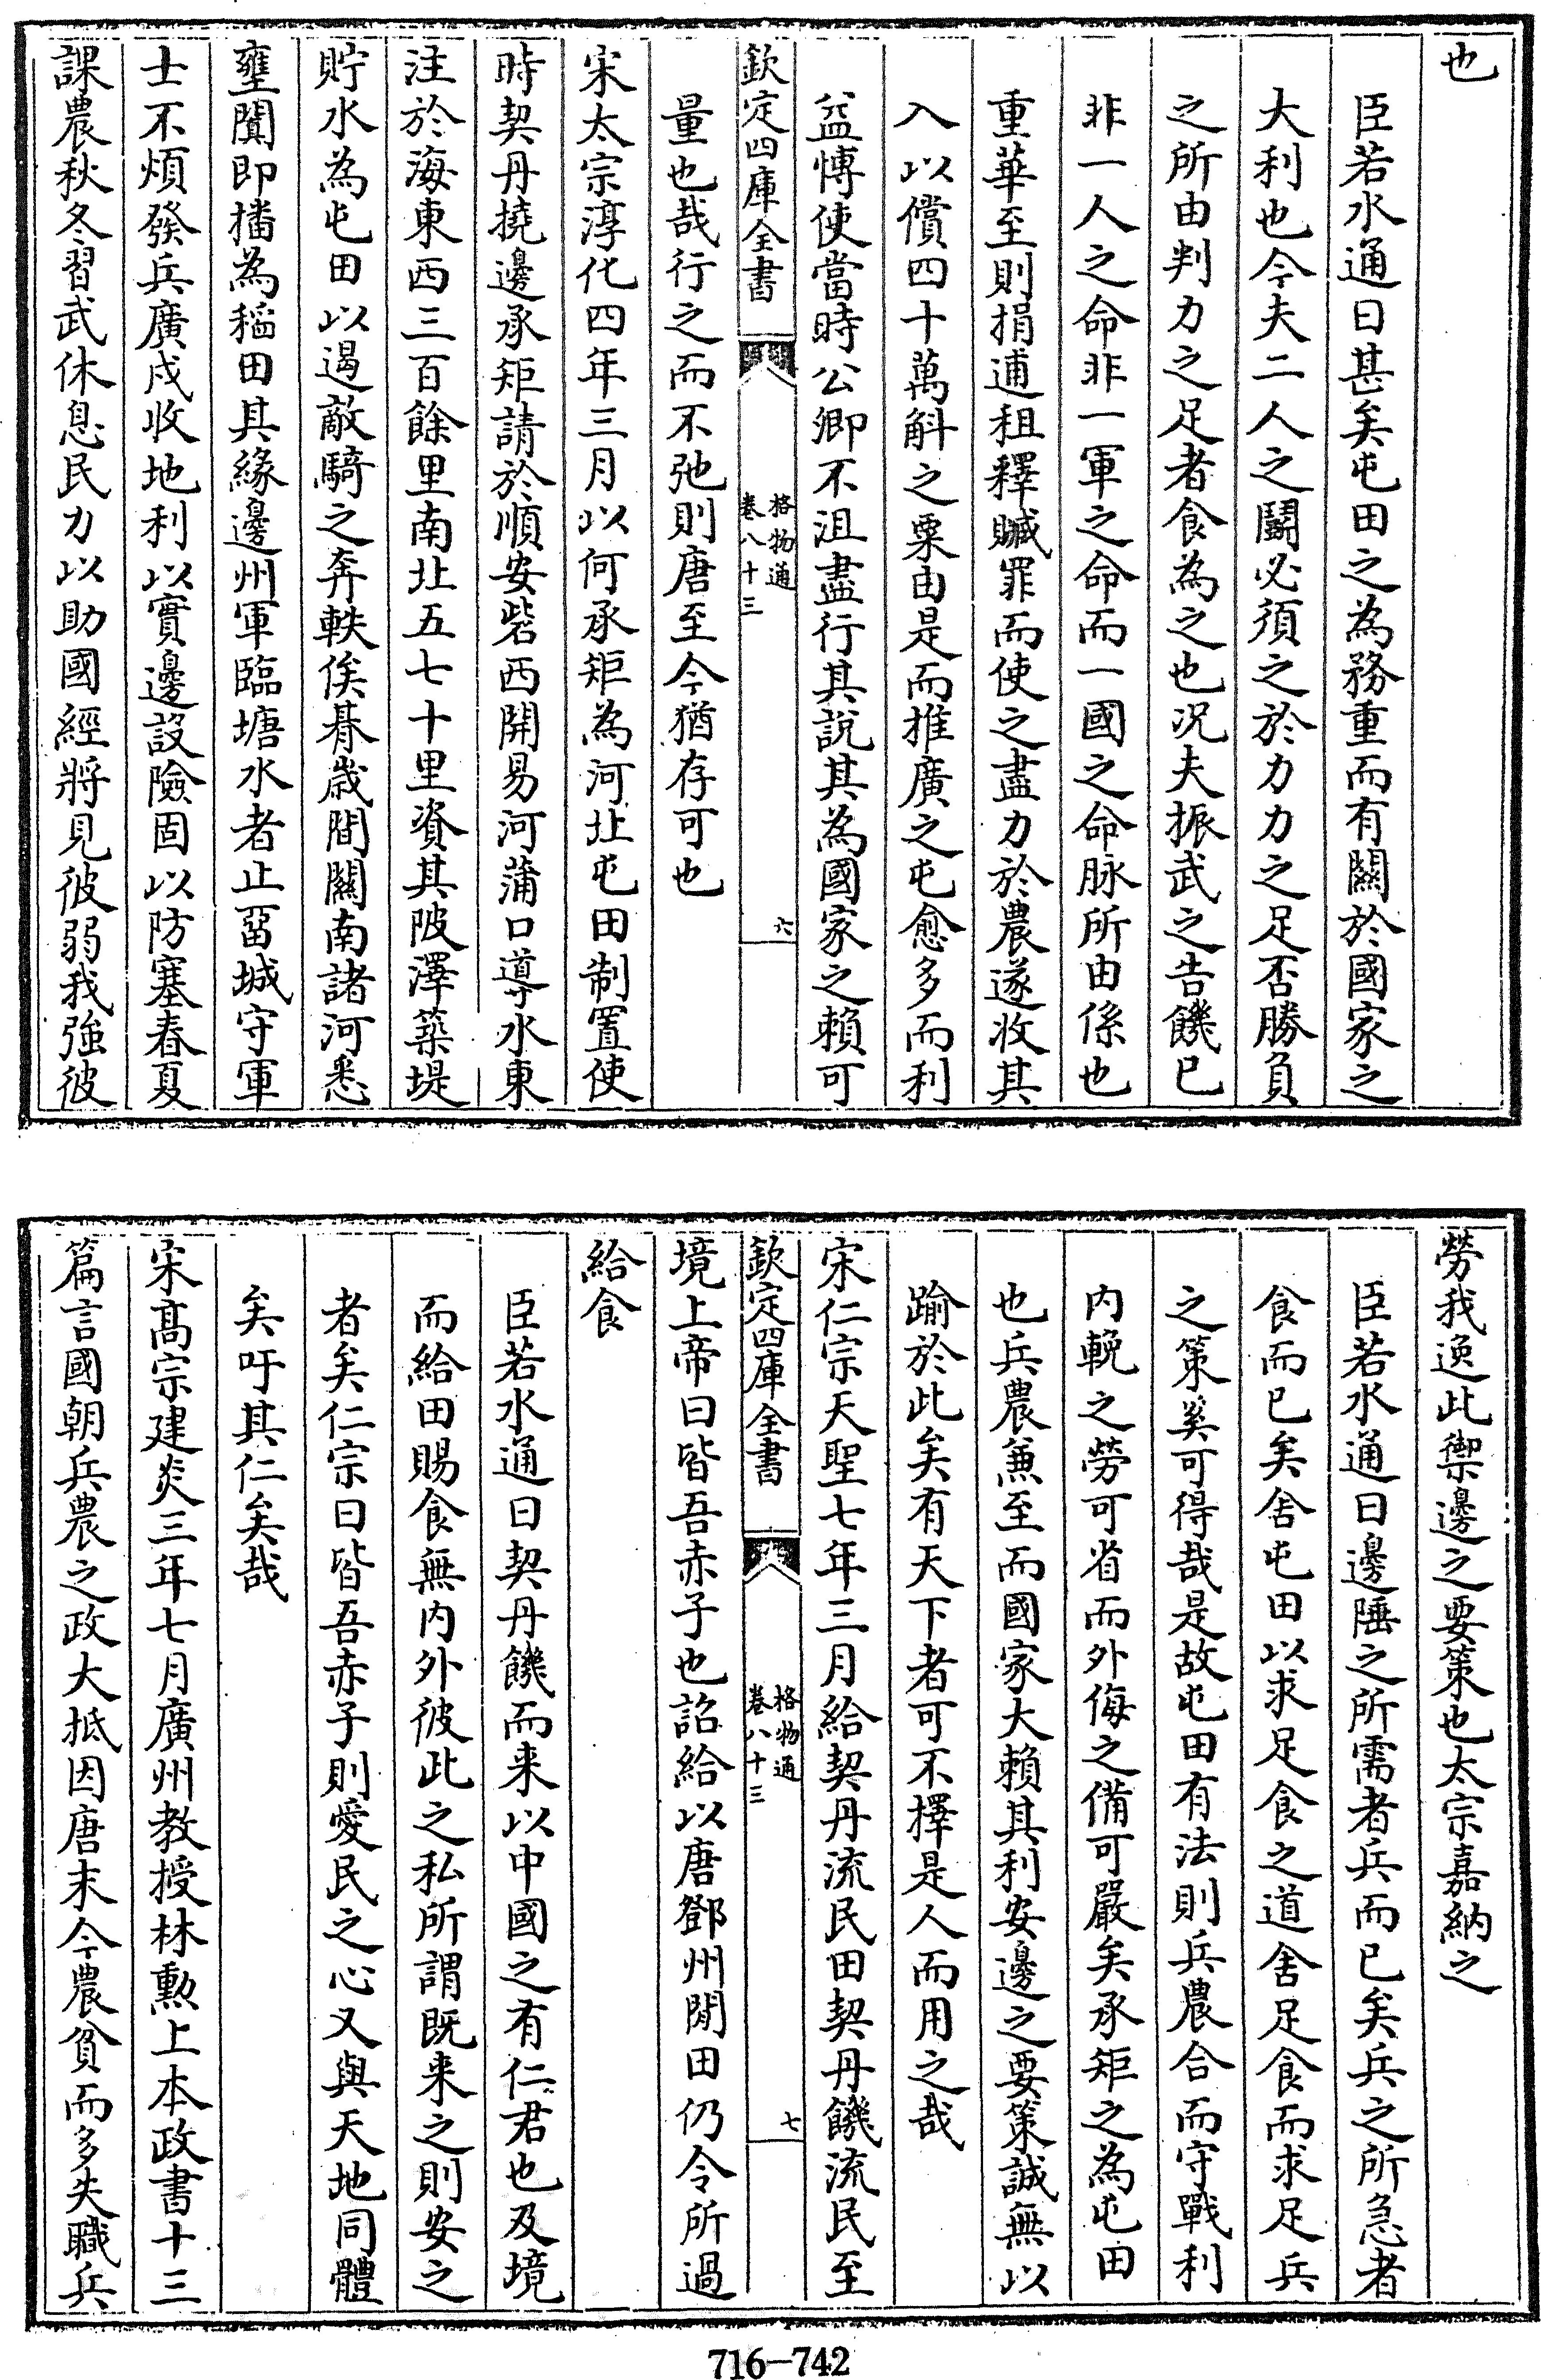 也
臣若水通曰甚矣屯田之為務重而有關於國家之
大利也今夫二人之鬬必須之於力力之足否勝負
之所由判力之足者食為之也况夫振武之告饑已
非一人之命非一軍之命而一國之命脉所由係也
重華至則捐逋租釋贓罪而使之盡力於農遂收其
入以償四十萬斛之粟由是而推廣之屯愈多而利
益愽使當時公卿不沮盡行其說其為國家之賴可
欽定四庫全書
格物通
卷八十三
六
量也哉行之而不弛則唐至今猶存可也
宋太宗淳化四年三月以何承矩為河北屯田制置使
時契丹撓邊承矩請於順安砦西開易河蒲口導水東
注於海東西三百餘里南北五七十里資其陂澤築堤
貯水為屯田以遏敵騎之奔軼俟朞歲間關南諸河悉
壅闐即播為稻田其緣邊州軍臨塘水者止畱城守軍
士不煩發兵廣戍收地利以實邊設險固以防塞春夏
課農秋冬習武休息民力以助國經將見彼弱我強彼
勞我逸此禦邊之要策也太宗嘉納之
臣若水通曰邊陲之所需者兵而已矣兵之所急者
食而已矣舍屯田以求足食之道舍足食而求足兵
之策奚可得哉是故屯田有法則兵農合而守戰利
内輓之勞可省而外侮之備可嚴矣承矩之為屯田
也兵農兼至而國家大賴其利安邊之要策誠無以
踰於此矣有天下者可不擇是人而用之哉
宋仁宗天聖七年三月給契丹流民田契丹饑流民至
欽定四庫全書
格物通
卷八十三
七
境上帝曰皆吾赤子也詔給以唐鄧州閒田仍令所過
給食
臣若水通曰契丹饑而来以中國之有仁君也及境
而給田賜食無内外彼此之私所謂既来之則安之
者矣仁宗曰皆吾赤子則愛民之心又與天地同體
矣吁其仁矣哉
宋髙宗建炎三年七月廣州教授林勲上本政書十三
篇言國朝兵農之政大抵因唐末今農貧而多失職兵
716-742